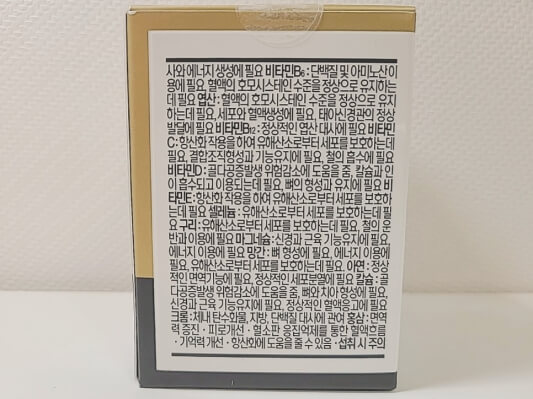 사와 에너지 생성에 필요 비타민B₆ : 단백질 및 아미노산 이
용에 필요, 혈액의 호모시스테인 수준을 정상으로 유지하는
데 필요 엽산 : 혈액의 호모시스테인 수준을 정상으로 유지
하는데 필요, 세포와 혈액생성에 필요, 태아 신경관의 정상
발달에 필요 비타민B₁₂ : 정상적인 엽산 대사에 필요 비타민
C : 항산화 작용을 하여 유해산소로부터 세포를 보호하는데
필요, 결합조직 형성과 기능유지에 필요, 철의 흡수에 필요
비타민D : 골다공증발생 위험감소에 도움을 줌, 칼슘과 인
이 흡수되고 이용되는데 필요, 뼈의 형성과 유지에 필요 비
타민E : 항산화 작용을 하여 유해산소로부터 세포를 보호하
는데 필요 셀레늄 : 유해산소로부터 세포를 보호하는데 필
요 구리 : 유해산소로부터 세포를 보호하는데 필요, 철의 운
반과 이용에 필요 마그네슘 : 신경과 근육 기능유지에 필요,
에너지 이용에 필요 망간 : 뼈 형성에 필요, 에너지 이용에
필요, 유해산소로부터 세포를 보호하는데 필요. 아연 : 정상
적인 면역기능에 필요, 정상적인 세포분열에 필요 칼슘 : 골
다공증발생 위험감소에 도움을 줌, 뼈와 치아 형성에 필요,
신경과 근육 기능유지에 필요, 정상적인 혈액응고에 필요
크롬 : 체내 탄수화물, 지방, 단백질 대사에 관여 홍삼 : 면역
력 증진 · 피로개선 · 혈소판 응집억제를 통한 혈액흐름
· 기억력 개선 · 항산화에 도움을 줄 수 있음 · 섭취 시 주의